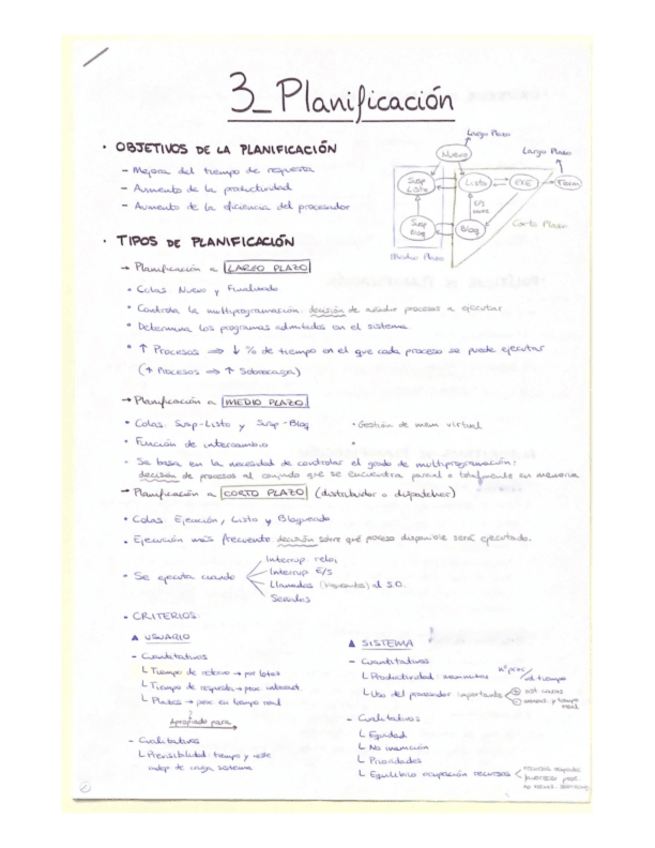 3_ Planificación
· OBJETIVOS DE LA PLANIFICACIÓN
- Mejora del tiempo de respuesta
- Aumento de la productividad
- Aumento de la eficiencia del procesador
Largo Plazo
Nuevo
Largo Plazo
Susp Listo
Listo
EXE
Term
E/S
Susp Bloq
Bloq
Corto Plazo
Medio Plazo
· TIPOS DE PLANIFICACIÓN
→ Planificación a LARGO PLAZO
• Colas: Nuevo y Finalizado
• Controla la multiprogramación: decisión de añadir procesos a ejecutar
• Determina los programas admitidos en el sistema.
• ↑ Procesos ⇒ ↓ % de tiempo en el que cada proceso se puede ejecutar
(↑ Procesos ⇒ ↑ Sobrecarga)
→ Planificación a MEDIO PLAZO
• Colas: Susp-Listo y Susp-Bloq
• Gestión de mem virtual
• Función de intercambio
• Se basa en la necesidad de controlar el grado de multiprogramación:
decisión de procesos al conjunto que se encuentra parcial o totalmente en memoria
→ Planificación a CORTO PLAZO (distribuidor o dispatcher)
• Colas: Ejecución, Listo y Bloqueado
• Ejecución más frecuente: decisión sobre qué proceso disponible será ejecutado.
• Se ejecuta cuando
Interrup. reloj
Interrup. E/S
Llamadas al S.O.
Señales
• CRITERIOS:
▲ USUARIO
- Cuantitativos
└ Tiempo de retorno → por lotes
└ Tiempo de respuesta → proc. interact.
└ Plazos → proc en tiempo real
Apropiado para
- Cualitativos
└ Previsibilidad: tiempo y coste
indep de carga sistema
▲ SISTEMA
- Cuantitativos
└ Productividad: nº proc / ud tiempo
└ Uso del procesador importante
- Cualitativos
└ Equidad
└ No inanición
└ Prioridades
└ Equilibrio ocupación recursos